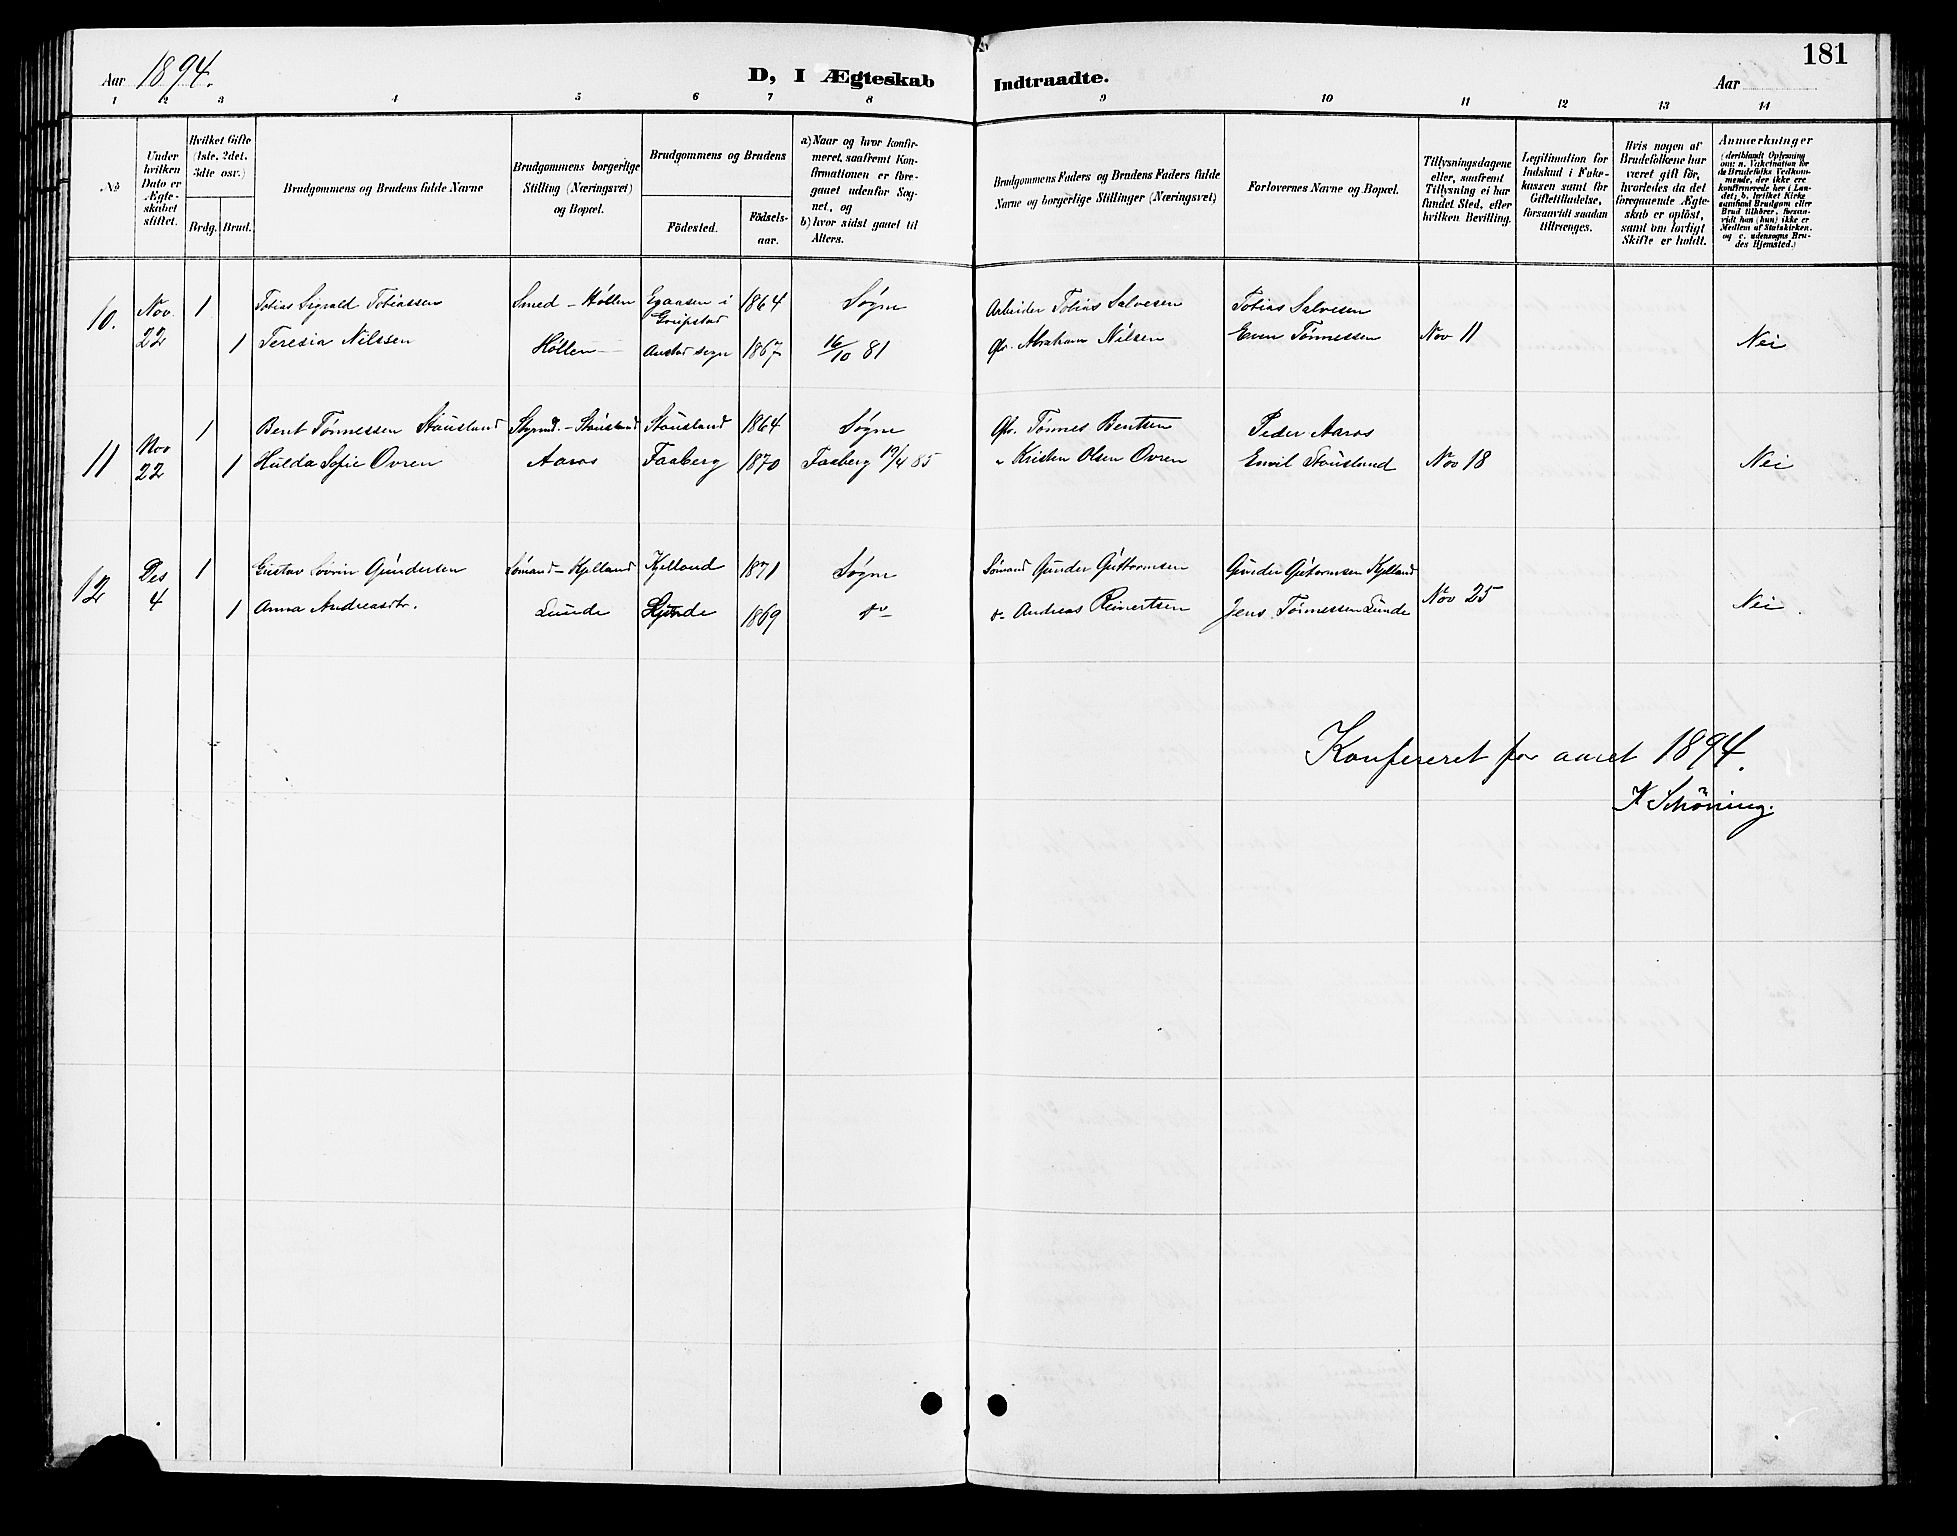 181
Aar 1894.
D, I Ægteskab Indtraadte.
Aar
1 2 3 4 5 6 7 8 9 10 11 12 13 14
№
Under hvilken Dato er Ægteskabet stiftet.
Hvilket Gifte (1ste, 2det, 3dte osv.)
Brdg. Brud.
Brudgommens og Brudens fulde Navne
Brudgommens borgerlige Stilling (Næringsvet) og Bopæl.
Brudgommens og Brudens
Födested.
Födselsaar.
a) Naar og hvor konfirmeret, saafremt Konfirmationen er foregaaet udenfor Sognet, og
b) hvor sidst gaaet til Alters.
Brudgommens Faders og Brudens Faders fulde Navne og borgerlige Stillinger (Næringsvet)
Forlovernes Navne og Bopæl.
Tillysningsdagene eller, saafremt Tillysning ei har fundet Sted, efter hvilken Bevilling.
Legitimation for Indskud i Enkekassen samt for Giftetilladelse, forsaavidt saadan tiltrænges.
Hvis nogen af Brudefolkene har været gift för, hvorledes da det foregaaende Ægteskab er oplöst, samt om lovligt Skifte er holdt.
Anmærkninger
(deriblandt Oplysning om: a. Vakcination for de Brudefolks Vedkommende, der ikke ere konfirmerede her i Landet; b. hvilket Kirkesamfund Brudgom eller Brud tilhører, forsaavidt han (hun) ikke er Medlem af Statskirken, og c. udensogns Brudes Hjemsted.)
10. Nov 22 1 Tobias Sigvald Tobiassen Smed - Høllen i 1864 Søgne Arbeider Tobias Salvesen Tobias Salvesen
1 Teresia Nilssen Høllen - sogn 1867 16/10 81 Abraham Nilsen Even Tønnessen Nov 11 Nei
11 Nov 22 1 Bent Tønnessen Stausland Styrmd. - Stausland Stausland 1864 Søgne Gbr. Tønnes Bentsen Peder Aaros
1 Hulda Sofie Ovren Aaros Faaberg 1870 Faaberg 19/4 85 " Kristen Olsen Ovren Emil Stausland Nov 18 Nei
12 Des 4 1 Gustav Sövrin Gundersen Sömand - Kjelland Kjelland 1871 Søgne Sömand Gunder Guttormsen Gunder Gutormsen Kjelland
1 Anna Andreasdtr. Lunde Lunde 1869 do - Andreas Reinertsen Jens Tønnessen Lunde Nov 25 Nei
Konfereret for aaret 1894.
K Schöning.